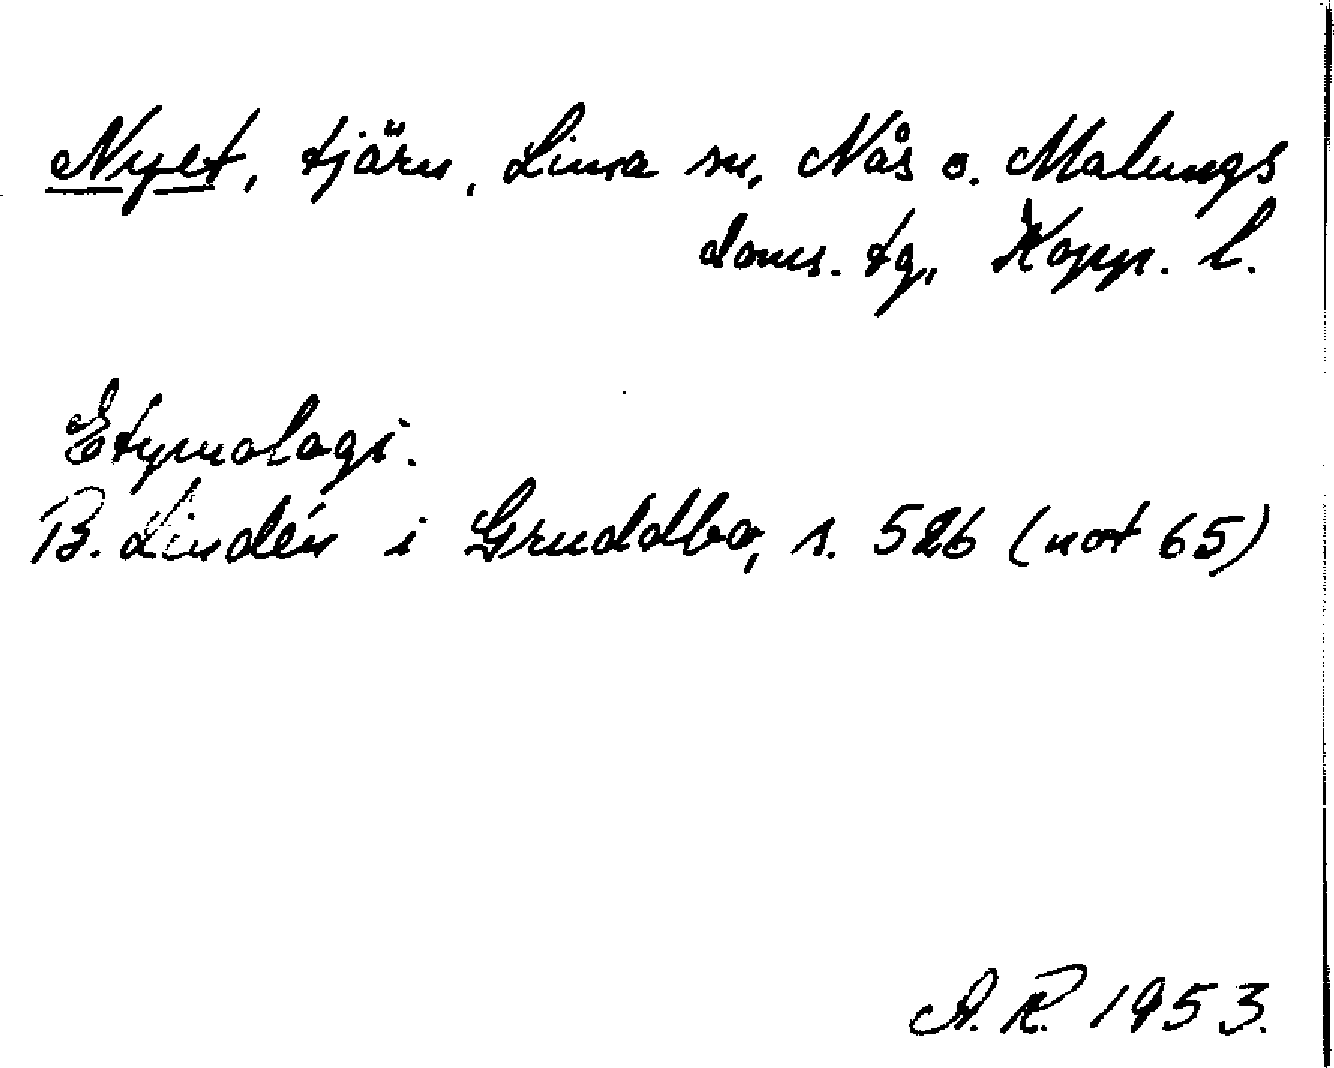 Nyet, tjärn, Lima sn, Nås o. Malungs
doms. tg., Kopp. l.
Etymologi.
B. Lindén i Gruddbo, s. 526 (not 65)
A. R. 1953.